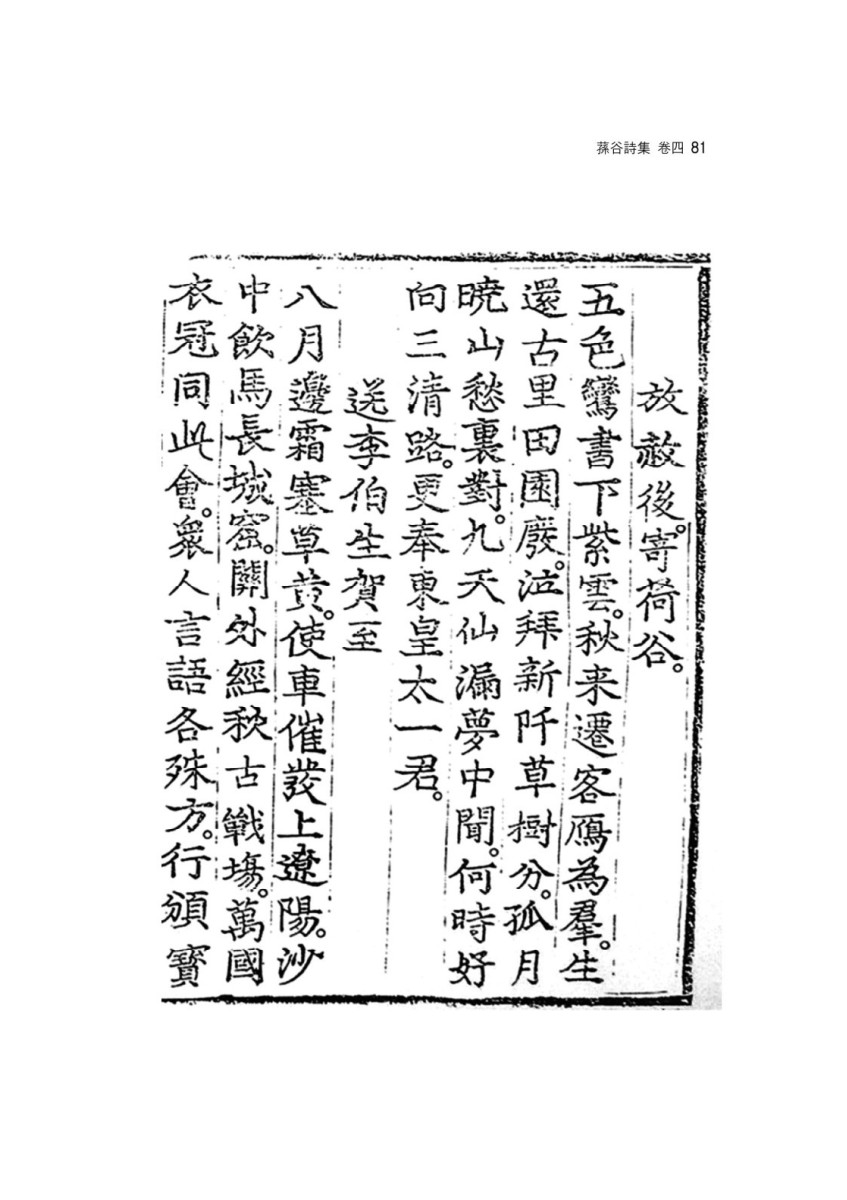 蓀谷詩集 卷四 81
放赦後。寄荷谷。
五色鸞書下紫雲。秋来遷客鴈為羣。生
還古里田園廢。泣拜新阡草樹分。孤月
曉山愁裏對。九天仙漏夢中聞。何時好
向三清路。更奉東皇太一君。
送李伯生賀至
八月邊霜塞草黄。使車催發上遼陽。沙
中飲馬長城窟。關外經秋古戰塲。萬國
衣冠同此會。衆人言語各殊方。行頒寳